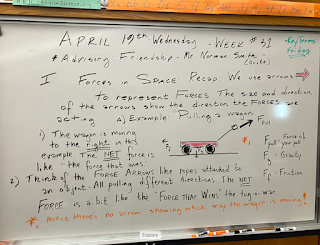 APRIL 19th Wednesday - WEEK # 31
* Key terms Friday
* Advising Friendship - Mr. Norman Smith -
(Quote)
I Forces in SPACE Recap: We use arrows
to represent FORCES The size and direction
of the arrows show the direction the FORCES are
acting A) Example: Pulling a wagon
F Pull
1) The wagon is moving
to the right in this
example The NET force is
like the force that wins
Ff
Fg
Fp Force of "pull" your pull
Fg - Gravity
Ff - Friction
2) Think of the FORCE ARROWS like ropes attached to
an object - All pulling different directions The NET
FORCE is a bit like the "FORCE THAT WINS" the tug-o-war
*, Notice there's no arrow showing which way the wagon is moving!